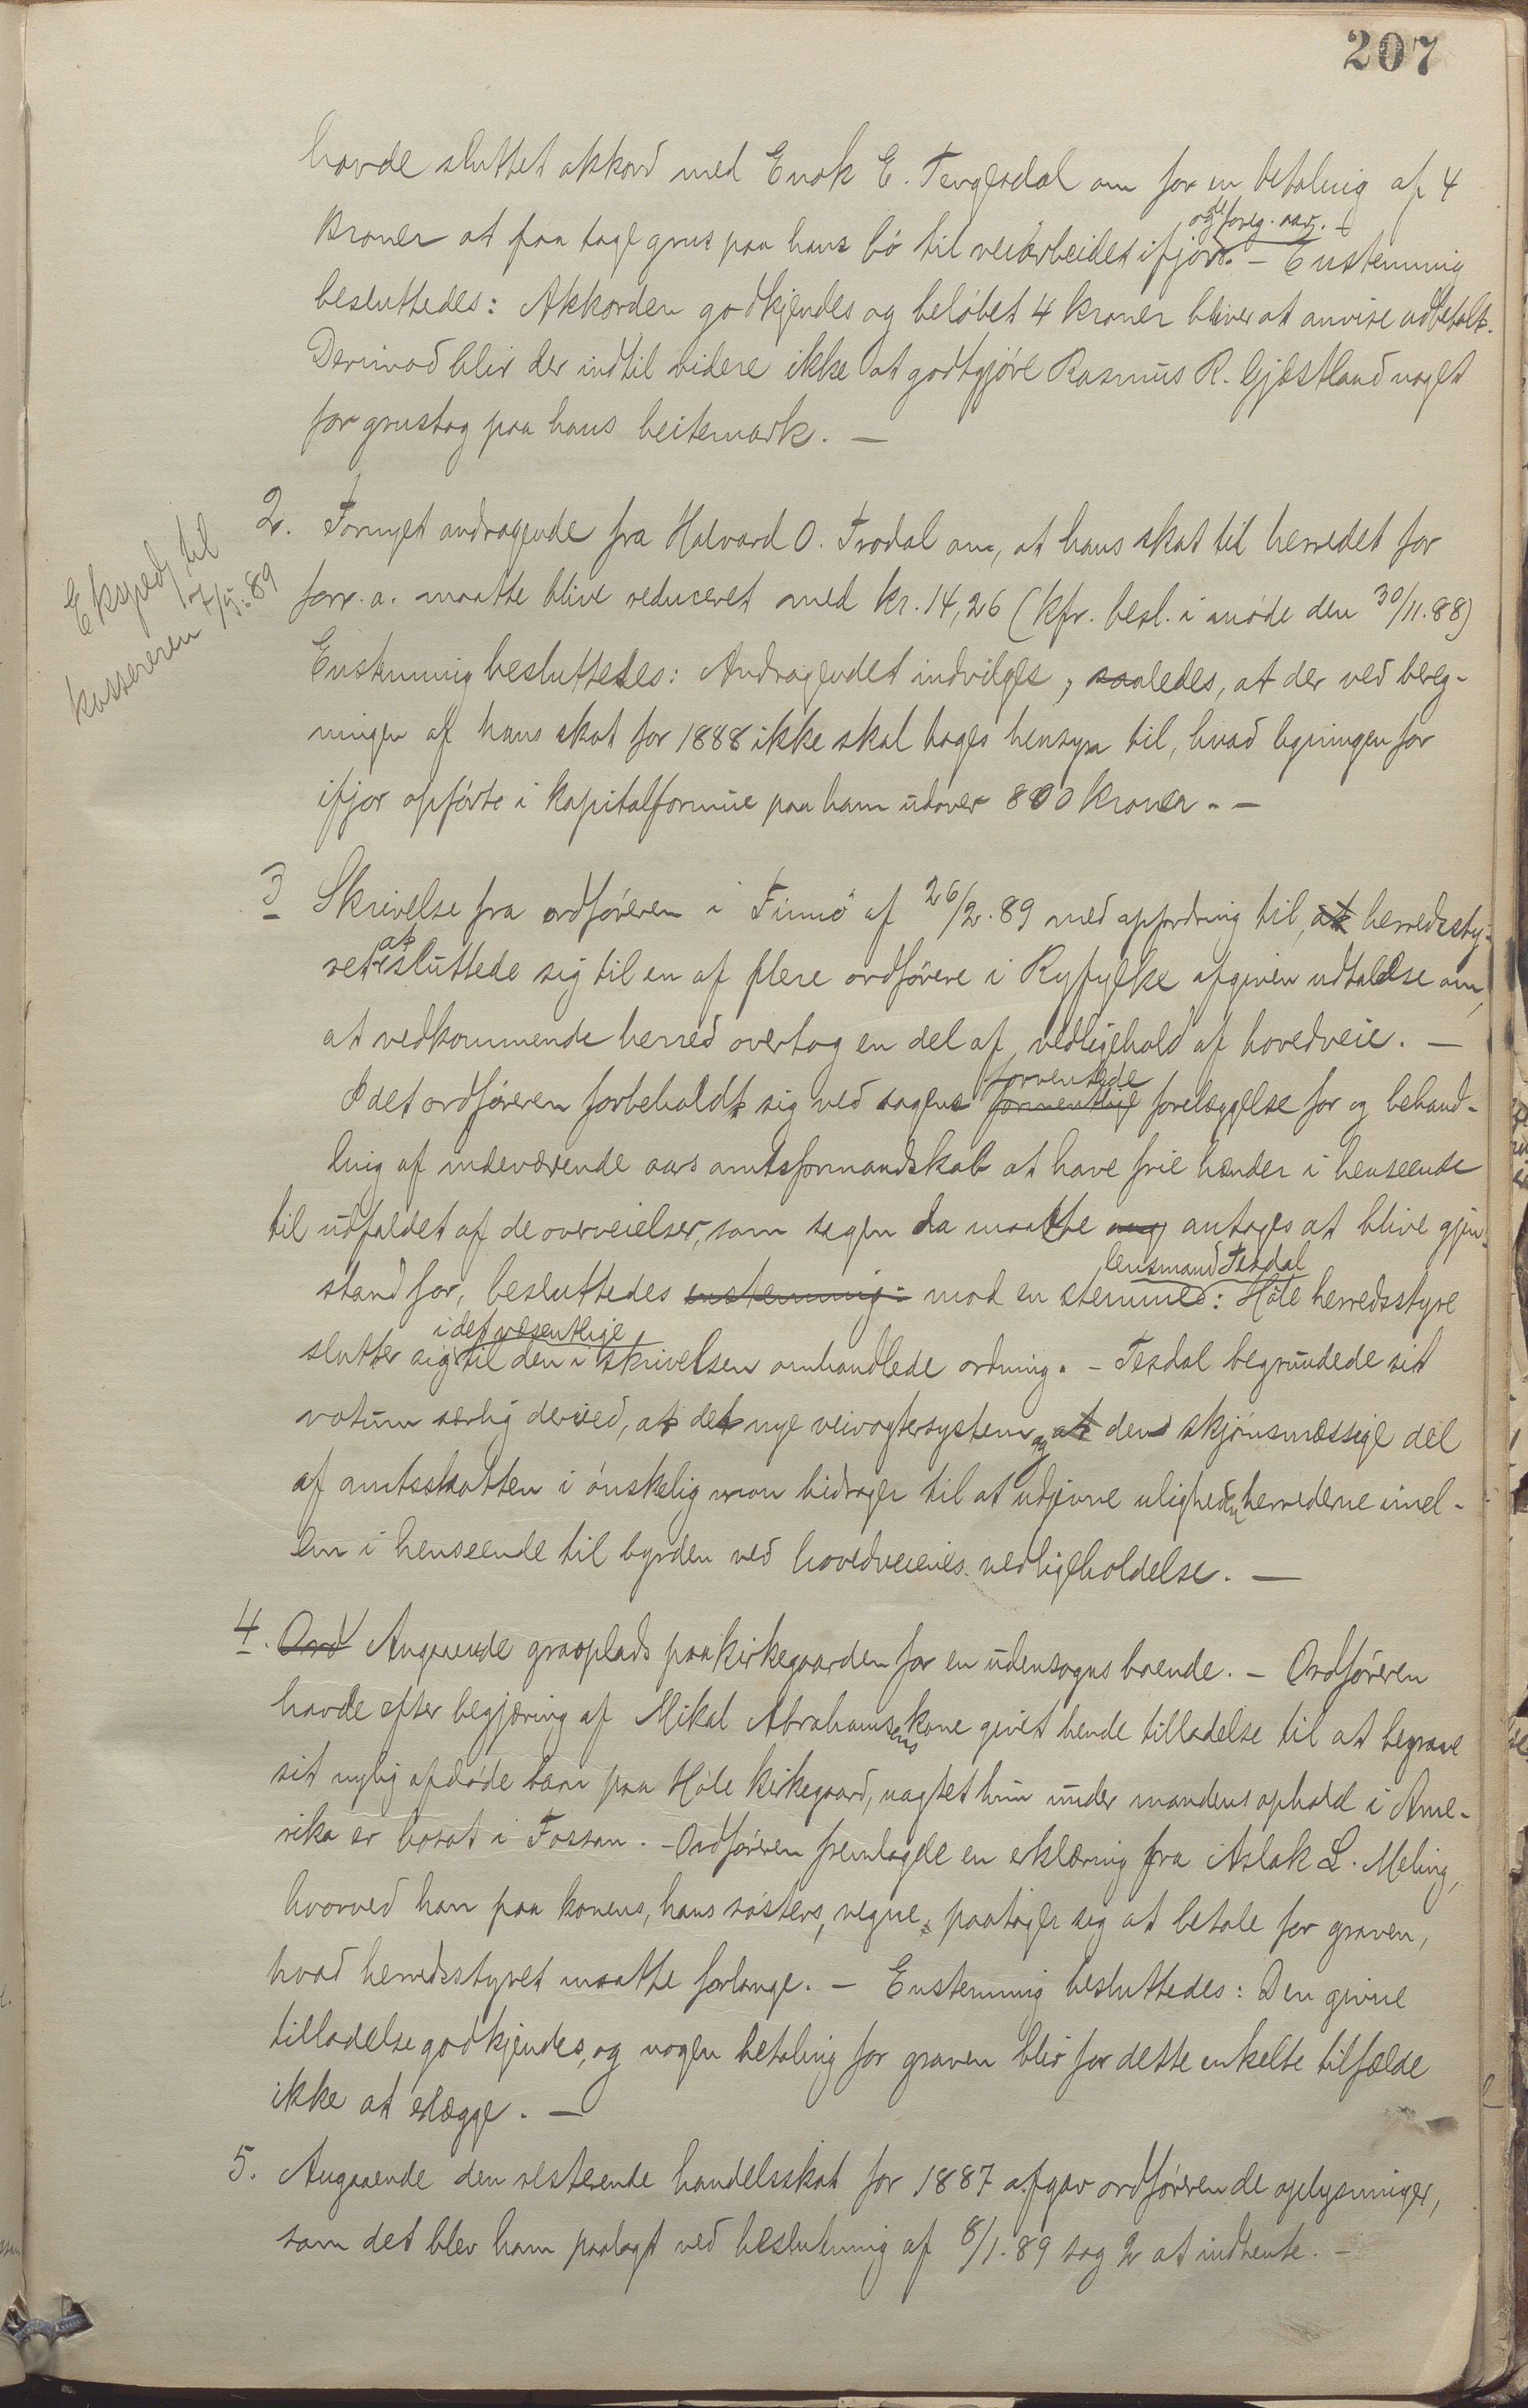 207
havde sluttet akkord med Enok E. Tengesdal om for en betaling af 4
kroner at faa tage grus paa hans bö til veiarbeidet ifjor og de foreg. aar. – Enstemmig
besluttedes: Akkorden godkjendes og belöbet 4 kroner bliver at anvise udbetalt.
Derimod blir der indtil videre ikke at godtgjöre Rasmus R. Gjestland noget
for grustag paa hans beitemark. —
Eksped. til
kassereren 17/5.89
2. Fornyet andragende fra Halvard O. Frodal om, at hans skat til herredet for
forr. a. maatte blive reduceret med kr. 14,26 (kfr. besl. i möde den 30/11.88)
Enstemmig besluttedes: Andragendet indvilges, saaledes, at der ved bereg-
ningen af hans skat for 1888 ikke skal tages hensyn til, hvad ligningen for
ifjor opförte i kapitalformue paa ham udover 800 kroner. —
3 Skrivelse fra ordföreren i Finnö af 26/2.89 med opfordring til, at herredssty-
ret at sluttede sig til en af flere ordförere i Ryfylke afgiven udtalelse om,
at vedkommende herred overtog en del af vedligehold af hovedveie. —
Idet ordföreren forbeholdt sig ved sagens formentlige forventede forelæggelse for og behand-
ling af indeværende aars amtsformandskab at have frie hænder i henseende
til udfaldet af de overveielser, som sagen da maatte antages at blive gjen-
stand for, besluttedes enstemmig: mod en stemme lensmand Tesdal: Höle herredsstyre
slutter sig i det væsentlige til den i skrivelsen omhandlede ordning. – Tesdal begrundede sit
votum særlig derved, at det nye veivogtersystem og at den skjönsmæssige del
af amtsskatten i önskelig mon bidrager til at udjevne uligheden herrederne imel-
lem i henseende til byrden ved hovedveienes vedligeholdelse. —
4. Ord Angaaende gravplads paa kirkegaarden for en udensogns boende. – Ordföreren
havde efter begjæring af Mikal Abrahamsens kone givet hende tilladelse til at begrave
sit nylig afdöde barn paa Höle kirkegaard, uagtet hun under mandens ophold i Ame-
rika er bosat i Fossan. – Ordföreren fremlagde en erklæring fra Aslak L. Meling,
hvorved han paa konens, hans sösters, vegne paatager sig at betale for graven,
hvad herredsstyret maatte forlange. – Enstemmig besluttedes: Den givne
tilladelse godkjendes, og nogen betaling for graven blir for dette enkelte tilfælde
ikke at erlægge. —
5. Angaaende den resterende handelsskat for 1887 afgav ordföreren de oplysninger,
som det blev ham paalagt ved beslutning af 8/1.89 sag 2 at indhente. –